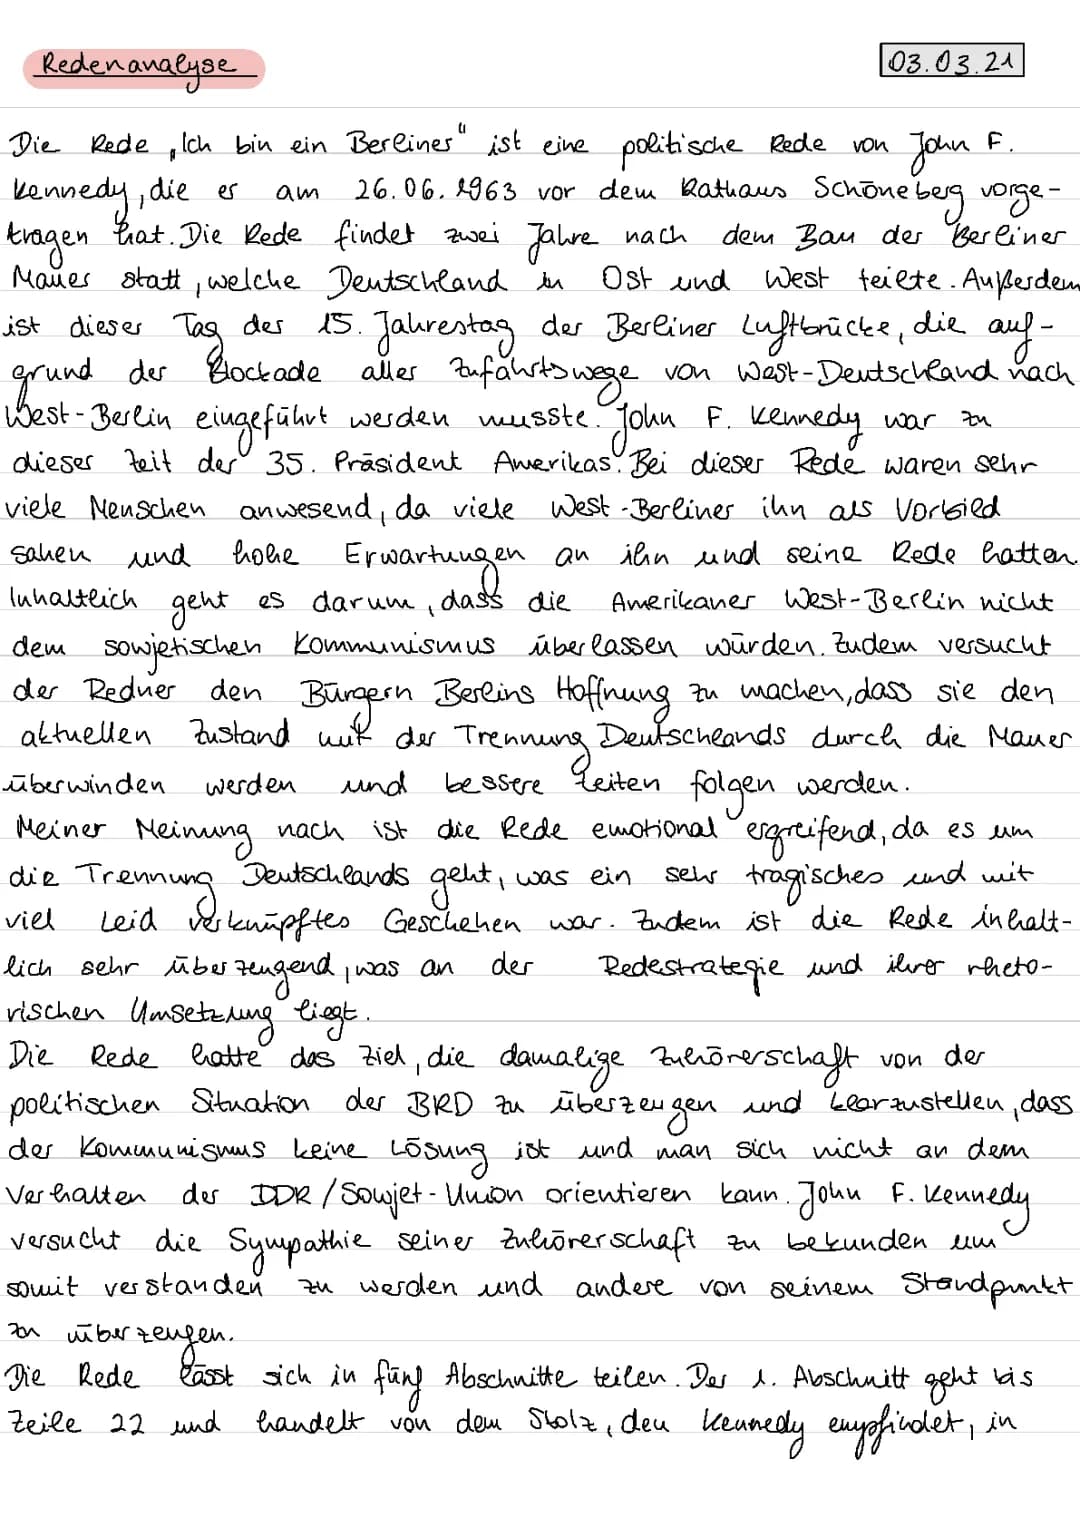 Redenanalyse
03.03.21
Die Rede „Ich bin ein Berliner" ist eine politische Rede von John F.
Kennedy, die er am 26.06.1963 vor dem Rathaus Schöneberg vorge-
tragen hat. Die Rede findet zwei Jahre nach dem Bau der Berliner
Mauer statt, welche Deutschland in Ost und West teilte. Außerdem
ist dieser Tag der 15. Jahrestag der Berliner Luftbrücke, die auf-
grund der Blockade aller Zufahrtswege von West-Deutschland nach
West-Berlin eingeführt werden musste. John F. Kennedy war zu
dieser Zeit der 35. Präsident Amerikas. Bei dieser Rede waren sehr
viele Menschen anwesend, da viele West-Berliner ihn als Vorbild
sahen und hohe Erwartungen an ihn und seine Rede hatten.
Inhaltlich geht es darum, dass die Amerikaner West-Berlin nicht
dem sowjetischen Kommunismus überlassen würden. Zudem versucht
der Redner den Bürgern Berlins Hoffnung zu machen, dass sie den
aktuellen Zustand mit der Trennung Deutschlands durch die Mauer
überwinden werden und bessere Zeiten folgen werden.
Meiner Meinung nach ist die Rede emotional ergreifend, da es um
die Trennung Deutschlands geht, was ein sehr tragisches und mit
viel Leid verknüpftes Geschehen war. Zudem ist die Rede inhalt-
lich sehr überzeugend, was an der Redestrategie und ihrer rheto-
rischen Umsetzung liegt.
Die Rede hatte das Ziel, die damalige Zuhörerschaft von der
politischen Situation der BRD zu überzeugen und klarzustellen, dass
der Kommunismus keine Lösung ist und man sich nicht an dem
Verhalten der DDR/Sowjet-Union orientieren kann. John F. Kennedy
versucht die Sympathie seiner Zuhörerschaft zu bekunden um
somit verstanden zu werden und andere von seinem Standpunkt
zu überzeugen.
Die Rede lässt sich in fünf Abschnitte teilen. Der 1. Abschnitt geht bis
Zeile 22 und handelt von dem Stolz, den Kennedy empfindet, in